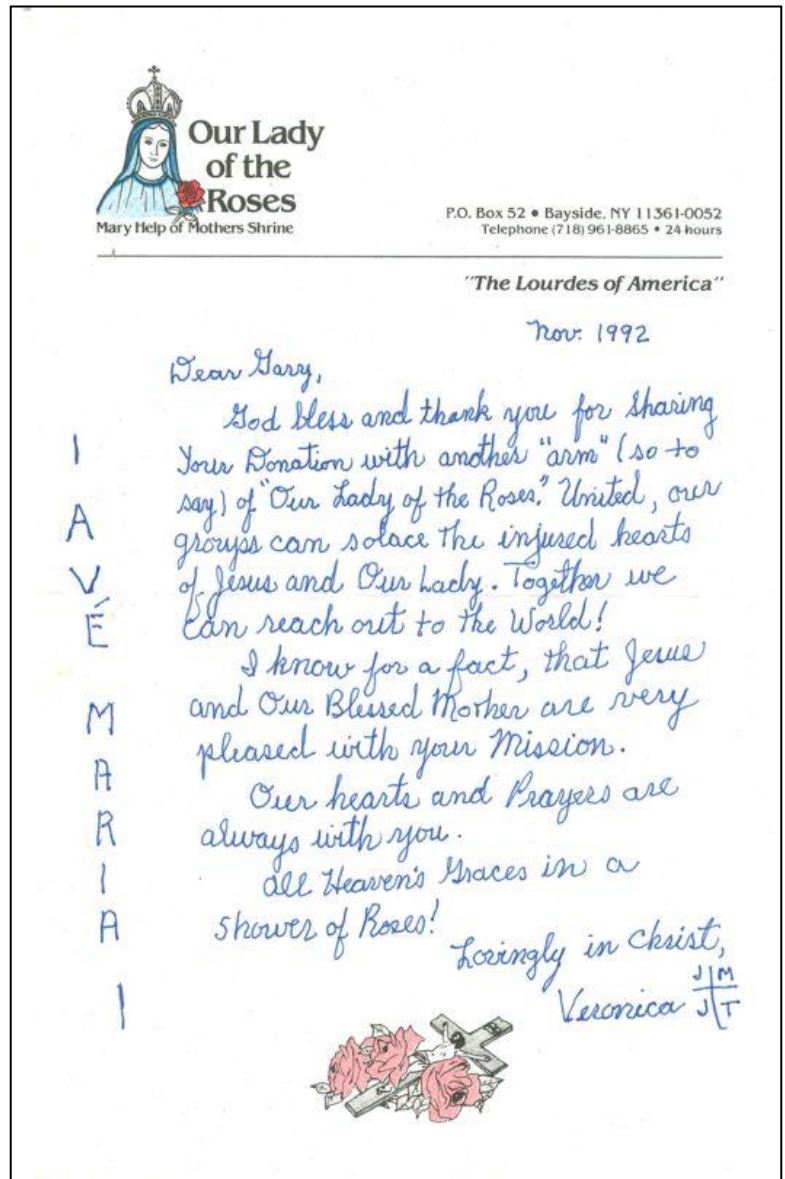 Our Lady
of the
Roses
Mary Help of Mothers Shrine
P.O. Box 52 • Bayside, NY 11361-0052
Telephone (718) 961-8865 • 24 hours
"The Lourdes of America"
Nov. 1992
Dear Gary,
God bless and thank you for sharing
Your Donation with another "arm" (so to
say) of "Our Lady of the Roses." United, our
groups can solace the injured hearts
of Jesus and Our Lady. Together we
can reach out to the World!
I know for a fact, that Jesus
and Our Blessed Mother are very
pleased with your Mission.
Our hearts and Prayers are
always with you.
All Heaven's Graces in a
shower of Roses!
Lovingly in Christ,
Veronica
J M
J T
! AVÉ MARIA !